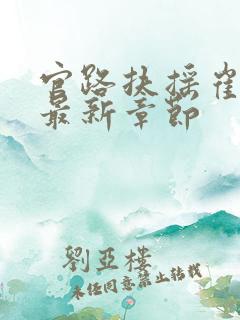 官路扶摇崔
最新章节
劉亞樓
未经同意禁止转载